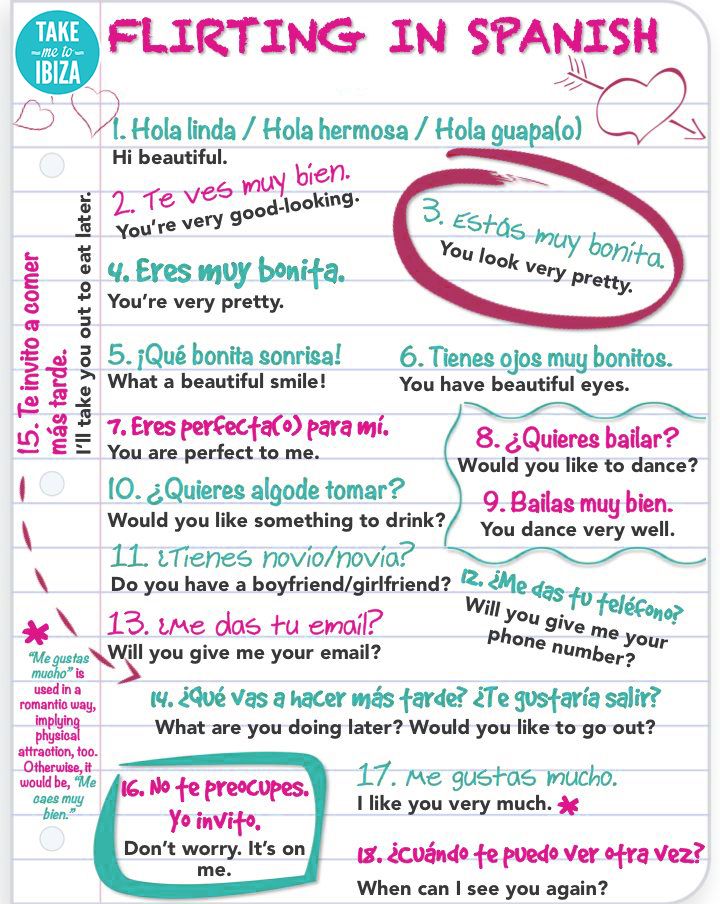 TAKE
me to
IBIZA
FLIRTING IN SPANISH
1. Hola linda / Hola hermosa / Hola guapa(o)
Hi beautiful.
2. Te ves muy bien.
You're very good-looking.
3. Estás muy bonita.
You look very pretty.
4. Eres muy bonita.
You're very pretty.
5. ¡Qué bonita sonrisa!
What a beautiful smile!
6. Tienes ojos muy bonitos.
You have beautiful eyes.
7. Eres perfecta(o) para mí.
You are perfect to me.
8. ¿Quieres bailar?
Would you like to dance?
9. Bailas muy bien.
You dance very well.
10. ¿Quieres algode tomar?
Would you like something to drink?
11. ¿Tienes novio/novia?
Do you have a boyfriend/girlfriend?
12. ¿Me das tu teléfono?
Will you give me your
phone number?
13. ¿Me das tu email?
Will you give me your email?
14. ¿Qué vas a hacer más tarde? ¿Te gustaría salir?
What are you doing later? Would you like to go out?
15. Te invito a comer
más tarde.
I'll take you out to eat later.
16. No te preocupes.
Yo invito.
Don't worry. It's on
me.
17. Me gustas mucho.
I like you very much. *
18. ¿Cuándo te puedo ver otra vez?
When can I see you again?
*
"Me gustas
mucho" is
used in a
romantic way,
implying
physical
attraction, too.
Otherwise, it
would be, "Me
caes muy
bien."